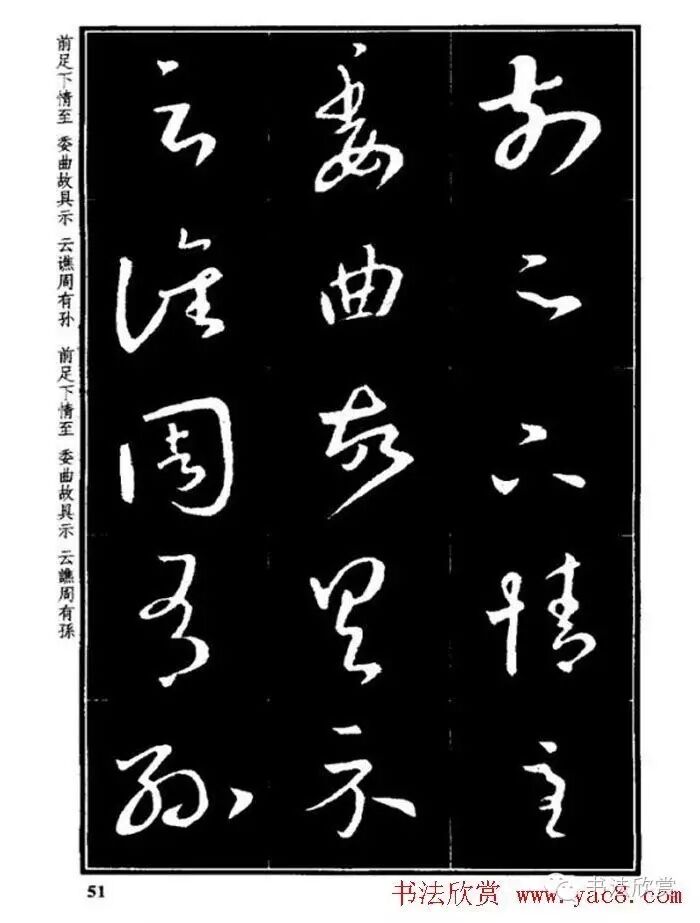 前足下情至
委曲故具示
云譙周有孫
前足下情至 委曲故具示 云谯周有孙 前足下情至 委曲故具示 云譙周有孫
51
书法欣赏 www.yac8.com
书法欣赏